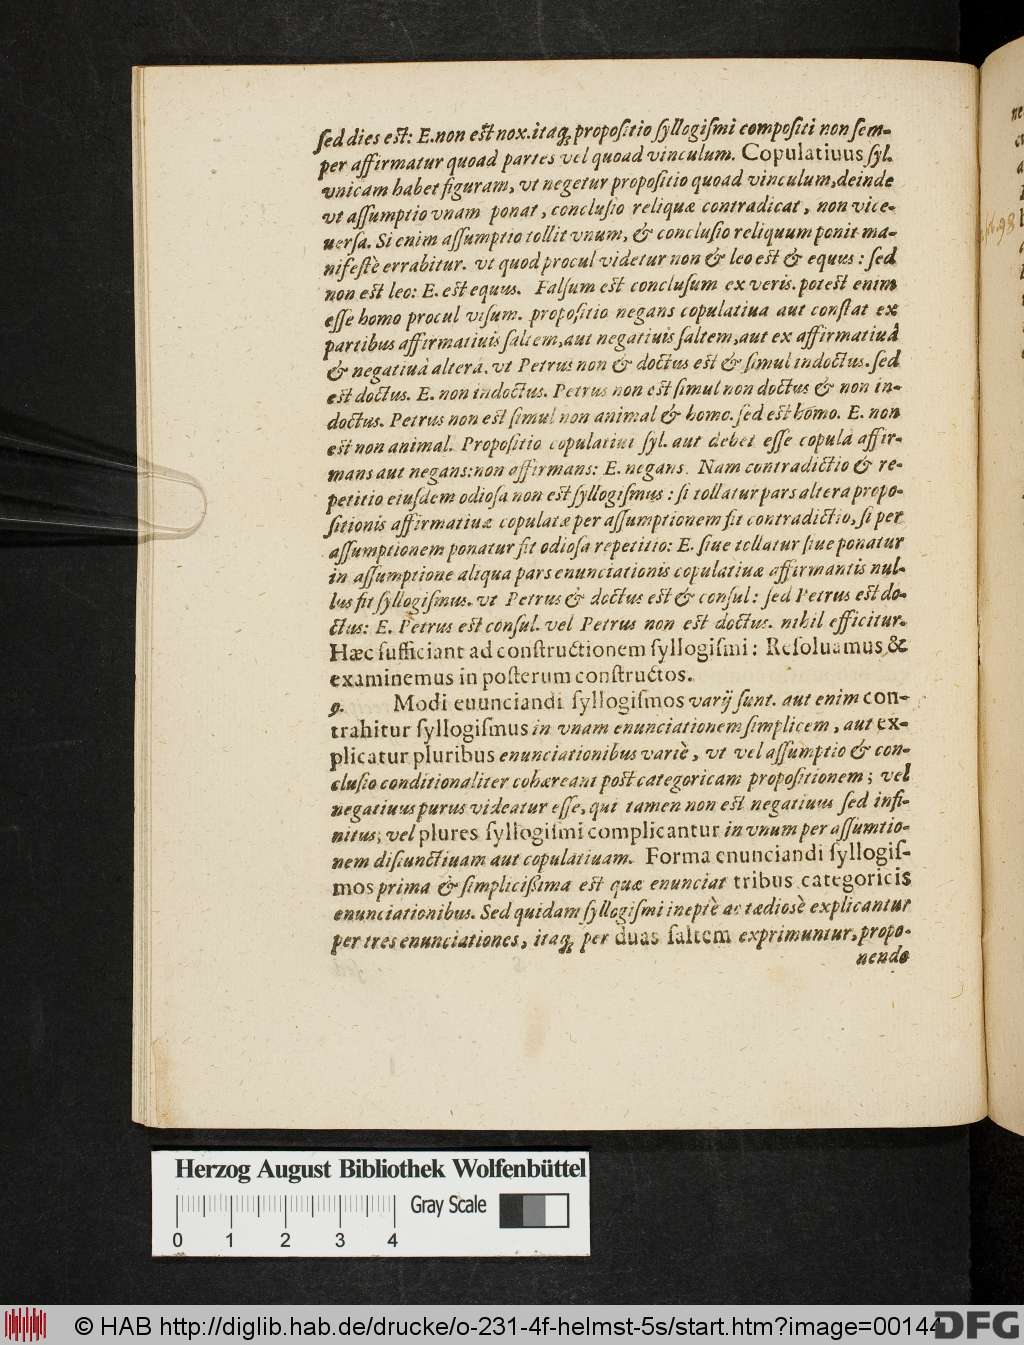 ſed dies eſt: E.non eſt nox.itaq; propoſitio ſyllogiſmi compoſiti non ſem-
per affirmatur quoad partes vel quoad vinculum. Copulatiuus ſyl.
vnicam habet figuram, vt negetur propoſitio quoad vinculum,deinde
vt aſſumptio vnam ponat, concluſio reliquæ contradicat, non vice-
uerſa. Si enim aſſumptio tollit vnum, & concluſio reliquum ponit ma-
nifeſtè errabitur. vt quod procul videtur non & leo eſt & equus: ſed
non eſt leo: E. eſt equus. Falſum eſt concluſum ex veris. poteſt enim
eſſe homo procul viſum. propoſitio negans copulatiua aut conſtat ex
partibus affirmatiuis ſaltem,aut negatiuis ſaltem,aut ex affirmatiuâ
& negatiuâ alterâ. vt Petrus non & doctus eſt & ſimul indoctus. ſed
eſt doctus. E. non indoctus. Petrus non eſt ſimul non doctus & non in-
doctus. Petrus non eſt ſimul non animal & homo. ſed eſt homo. E. non
eſt non animal. Propoſitio copulatiui ſyl. aut debet eſſe copulâ affir-
mans aut negans:non affirmans: E. negans. Nam contradictio & re-
petitio eiuſdem odioſa non eſt ſyllogiſmus: ſi tollatur pars altera propo-
ſitionis affirmatiuæ copulatæ per aſſumptionem fit contradictio, ſi per
aſſumptionem ponatur fit odioſa repetitio: E. ſiue tollatur ſiue ponatur
in aſſumptione aliqua pars enunciationis copulatiuæ affirmantis nul-
lus fit ſyllogiſmus. vt Petrus & doctus eſt & conſul: ſed Petrus eſt do-
ctus: E. Petrus eſt conſul. vel Petrus non eſt doctus. nihil efficitur.
Hæc ſufficiant ad conſtructionem ſyllogiſmi: Reſoluamus &
examinemus in poſterum conſtructos.
9. Modi enunciandi ſyllogiſmos varij ſunt. aut enim con-
trahitur ſyllogiſmus in vnam enunciationem ſimplicem, aut ex-
plicatur pluribus enunciationibus variè, vt vel aſſumptio & con-
cluſio conditionaliter cohæreant poſt categoricam propoſitionem; vel
negatiuus purus videatur eſſe, qui tamen non eſt negatiuus ſed infi-
nitus; vel plures ſyllogiſmi complicantur in vnum per aſſumtio-
nem diſiunctiuam aut copulatiuam. Forma enunciandi ſyllogiſ-
mos prima & ſimplicißima eſt quæ enunciat tribus categoricis
enunciationibus. Sed quidam ſyllogiſmi ineptè ac tædiosè explicantur
per tres enunciationes, itaq; per duas ſaltem exprimuntur, propo-
nendo
Herzog August Bibliothek Wolfenbüttel
Gray Scale
0 1 2 3 4
© HAB http://diglib.hab.de/drucke/o-231-4f-helmst-5s/start.htm?image=00144
DFG